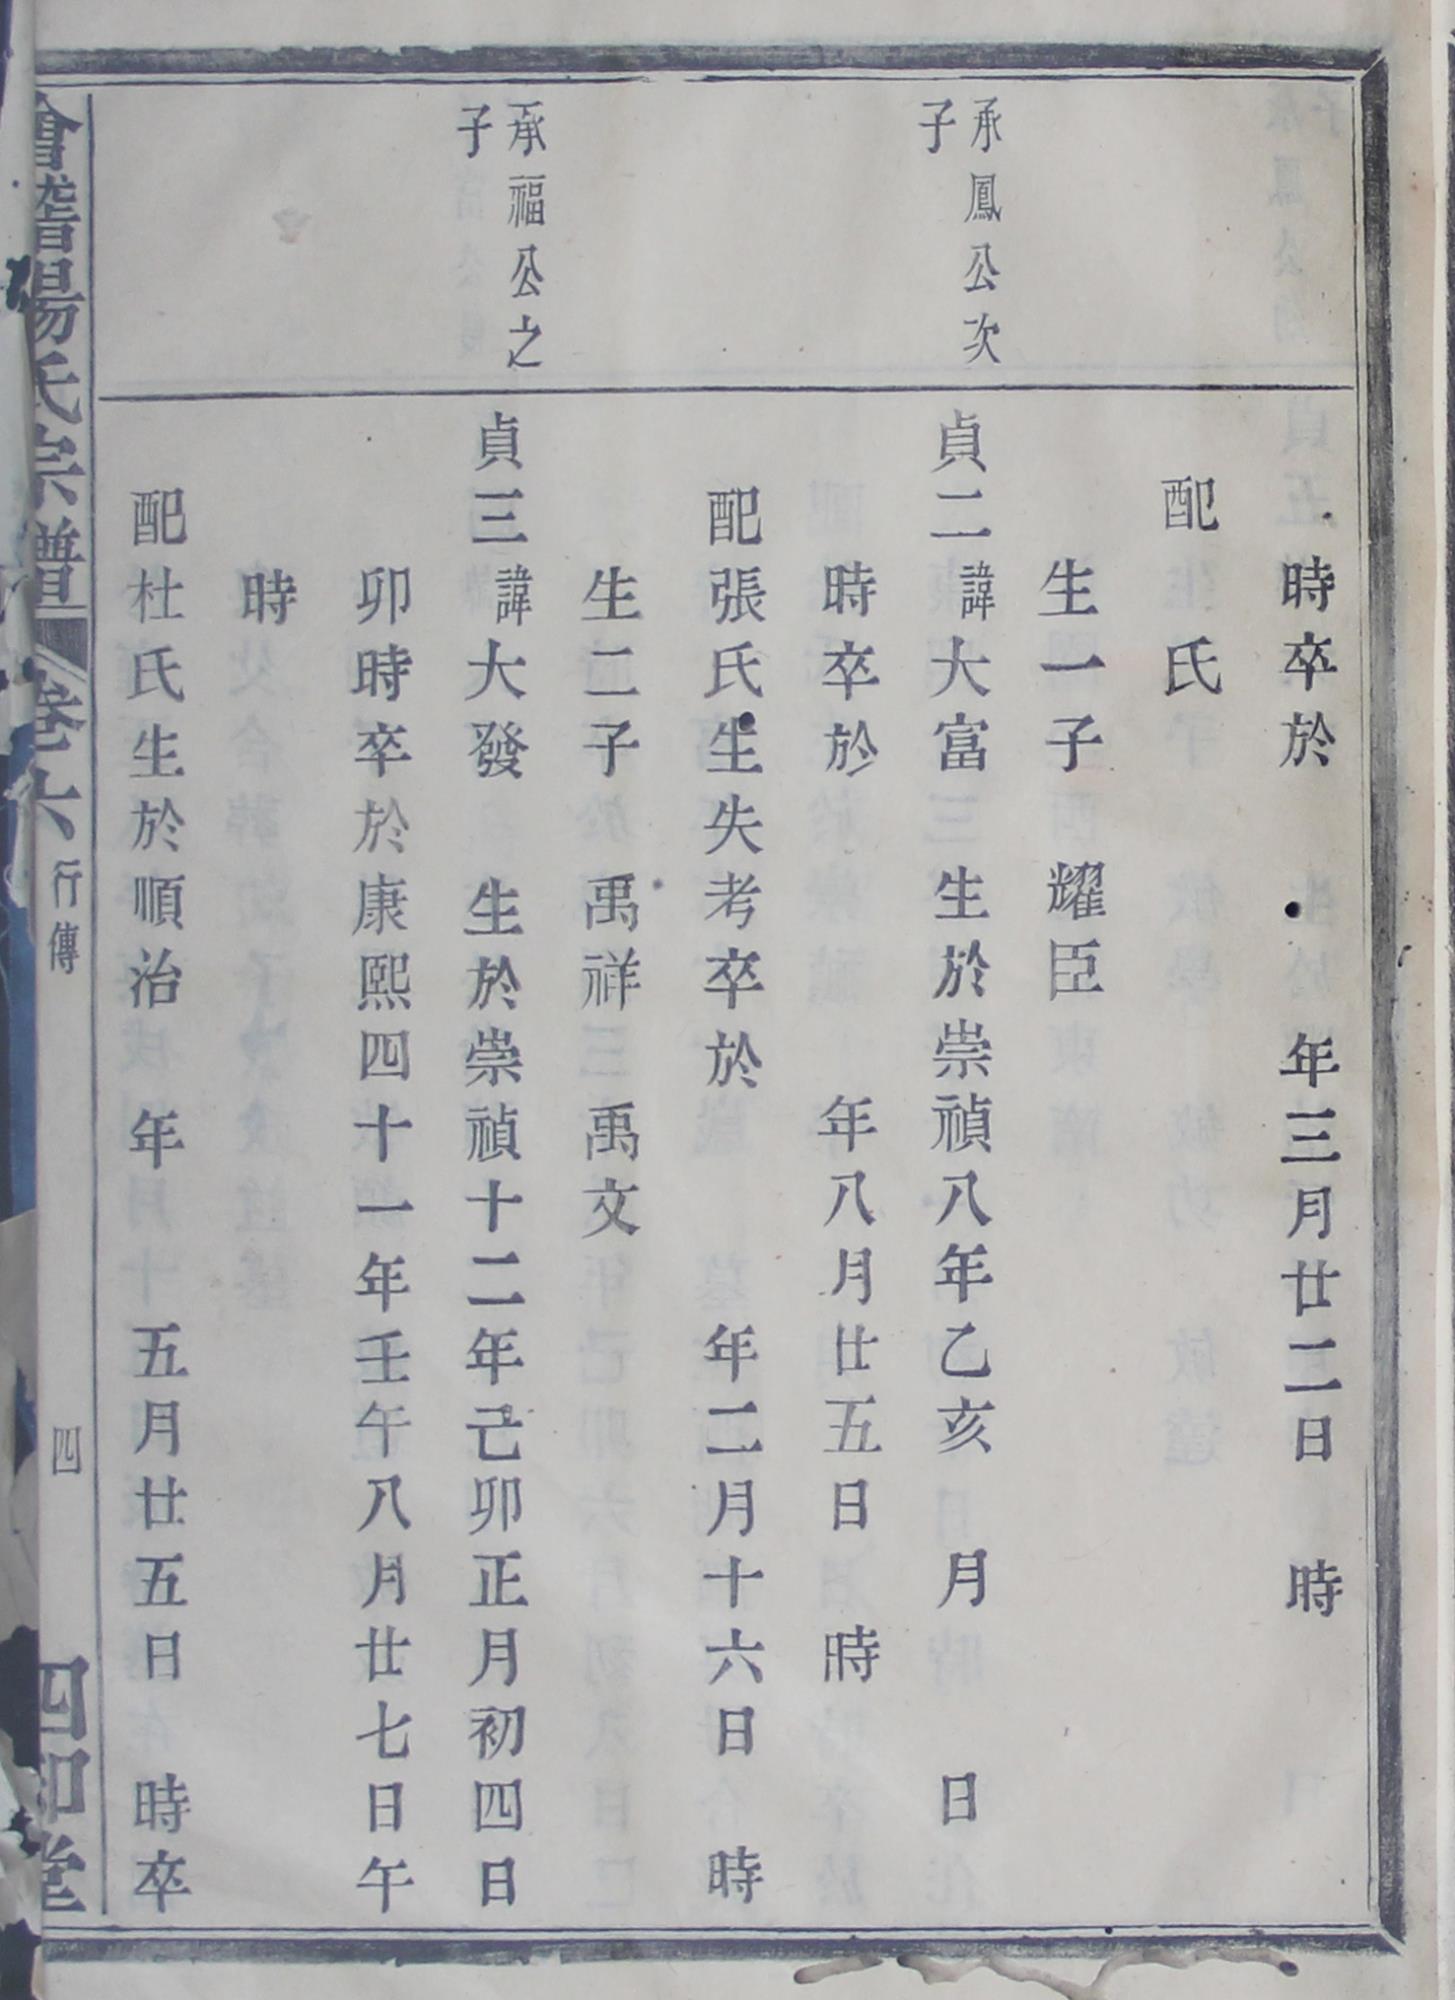 時卒於　年三月廿二日　時
配　氏
生一子　耀臣
承鳳公次
子
貞二諱大富　生於崇禎八年乙亥　月　日
時卒於　年八月廿五日　時
配張氏生失考卒於　年二月十六日　時
生二子　禹祥　禹文
承福公之
子
貞三諱大發　生於崇禎十二年己卯正月初四日
卯時卒於康熙四十一年壬午八月廿七日午
時
配杜氏生於順治　年　五月廿五日　時卒
會稽楊氏宗譜　卷六　行傳　四　四知堂